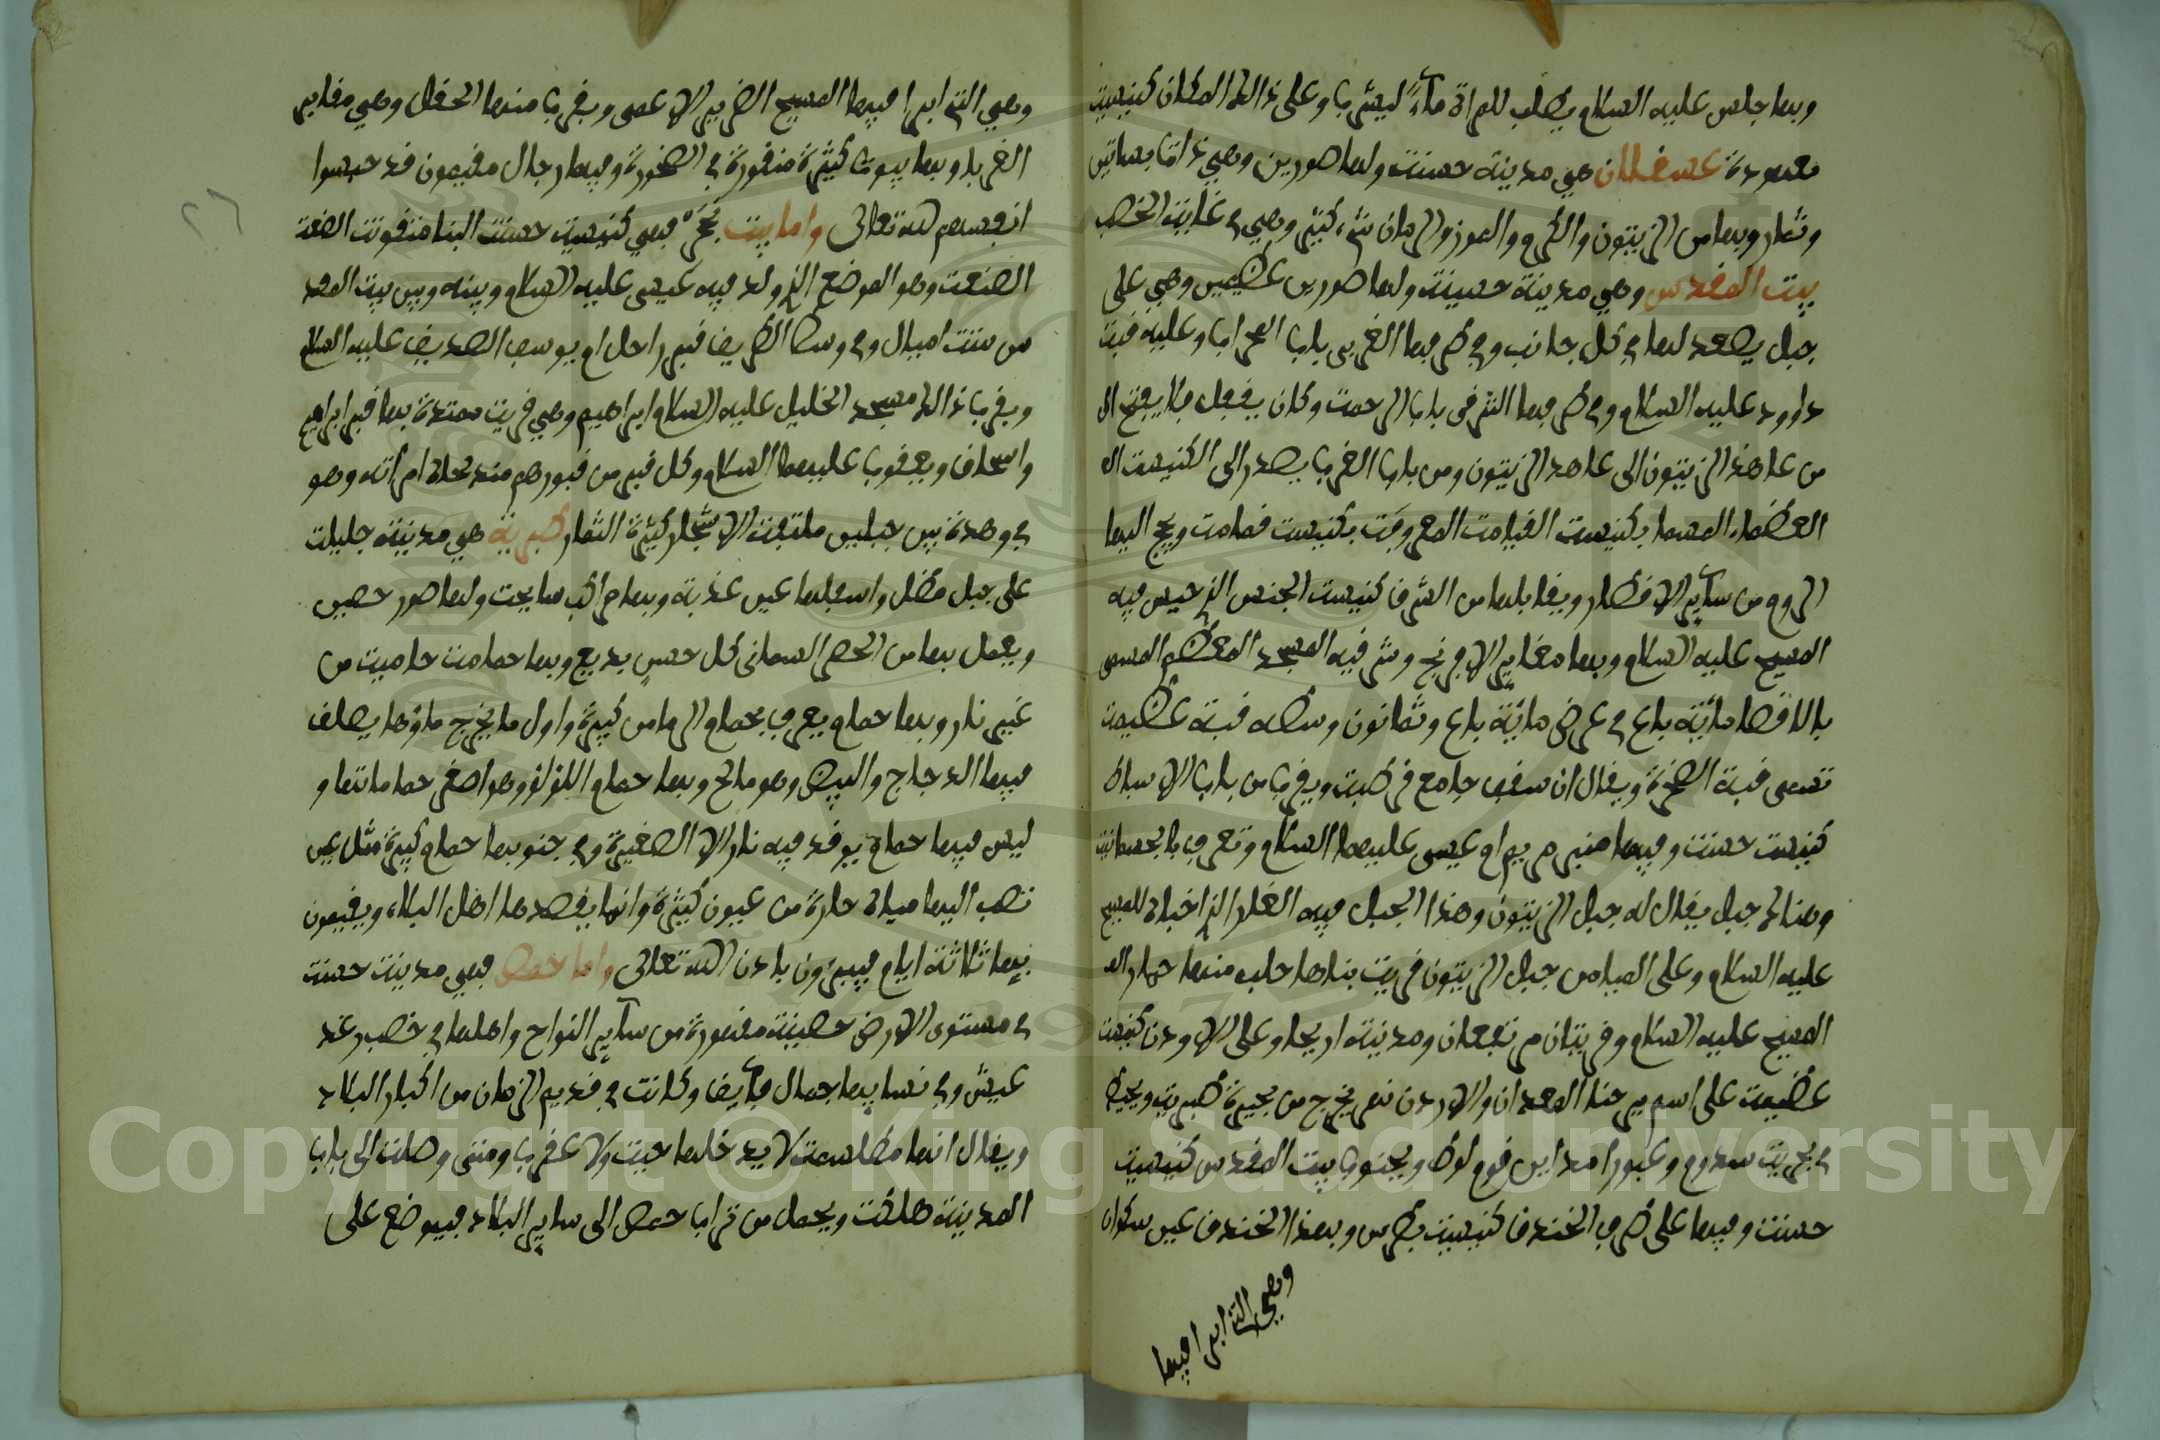 وبها جلس عليه السلام يطلب للمراة ماء ليشربا وعلى ذالك المكان كنيست
معمودة عسفلان هي مدينة حسنت ولها صورين وهي ذات بساتين
وثمار وبها من الزيتون والكروم والموز والرمان شيء كثير وهي في غايت الخصب
بيت المقدس وهي مدينة حسينة ولها صورين عظيمين وهي على
جبل يصعد لها في كل جانب وفي طرفها الغربي باب المحراب وعليه قبت
داوود عليه السلام وفي طرفها الشرقي باب الرحمت وكان يقفل فلا يفتح الا
من عاهذ الزيتون الى عاهد الزيتون ومن باب الغرب يصدر الى الكنيست ال
العظماء المسما بكنيست القيامت المعروفت بكنيست قمامت ويحج اليها
الروم من سآير الاقطار ويقابلها من الشرق كنيست الحبس الذي حبس فيه
المسيح عليه السلام وبها مقابر الافرنج وشرقيه المسجد المعظم المسمى
بالاقصا مائتة باع في عرض مائة باع وثمانون وسطه قبة عظيمت
تسمى قبة الصخرة ويقال ان سقف جامع قرطبت ويقرب من باب الاسباط
كنيست حسنت وفيها منبر مريم ام عيسى عليهما السلام وتعرف بالجسمانيت
وهناك جبل يقال له جبل الزيتون وهذا الجبل فيه الغار الذي اخباه للمسيح
عليه السلام وعلى الميامن جبل الزيتون قريت بناها حلب منها حمار ال
المسيح عليه السلام وقريتان مرتفعان ومدينة اريحا وعلى الاودن كنيست
عظيمت على اسم مر حنا المعمدان والاردن نهر يخرج من بحيرة طبريت ويحيط
في بحريت سدوم وعبورا مداين قوم لوط وبجنوب بيت المقدس كنيست
حسنت وفيها على طرف الخندق كنيست بطرس وبهذا الخندق عين سلوان
وهي التي ابرا فيها
وهي التي ابرا فيها المسيح الضرير الاعمى وبقربا منها الحقل وهي مقابر
الغربا وبها بيوت كثيرة منقورة في الصخورة وفيها رجال مقيمون قد حبسوا
انفسهم لله تعالى واما بيت لحم فهي كنيست حسنت البنا متقونت الصنعت
الصنعت وهو الموضع الذي ولد فيه عيسى عليه السلام وبينه وبين بيت المقد
س ستت اميال وفي وسط الطريق قبر راحل ام يوسف الصديق عليه السلام
وبقرب ذالك مسجد الخليل عليه السلام ابراهيم وهي قريت ممتدة بها قبر ابراهيم
واسحاق ويعقوب عليهما السلام وكل قبر من قبورهم منه تجاه امراته وهو
في وهدة بين جبلين ملتفت الاشجار كثيرة الثمار طبرية هي مدينة جليلت
على جبل مطل واسفلها عين عذبة وبها مراكب سابحت ولها صور حصين
ويعمل بها من الحصر السمانى كل حسن بديع وبها حمامت حاميت من
غير نار وبها حمام يعرف بحمام الرماس كبيرة واول ما يخرج ماؤها يصلق
فيها الدجاج والبيض وهو مالح وبها حمام اللؤلؤ وهو اصغر حماماتها و
ليس فيها حمام يوقد فيه نار الا الصغيرة وفي جنوبها حمام كبيرة مثل عين
تصب اليها مياه حارة من عيون كثيرة وانما يقصدها اهل البلاء ويقيمون
بها ثلاثة ايام فيبرون باذن الله تعالى واما حمص فهي مدينت حسنت
في مستوى الارض حصينة مقصورة من سآير النواح واهلها في خصب رغد
عيش وفي نسايها جمال فآيق وكانت في قديم الزمان من اكبار البلاد
ويقال انها مطلسمت لا يدخلها حيت ولا عقرب ومتى وصلت الى باب
المدينة هلكت ويحمل من تراب حمص الى ساير البلاد فيوضع على